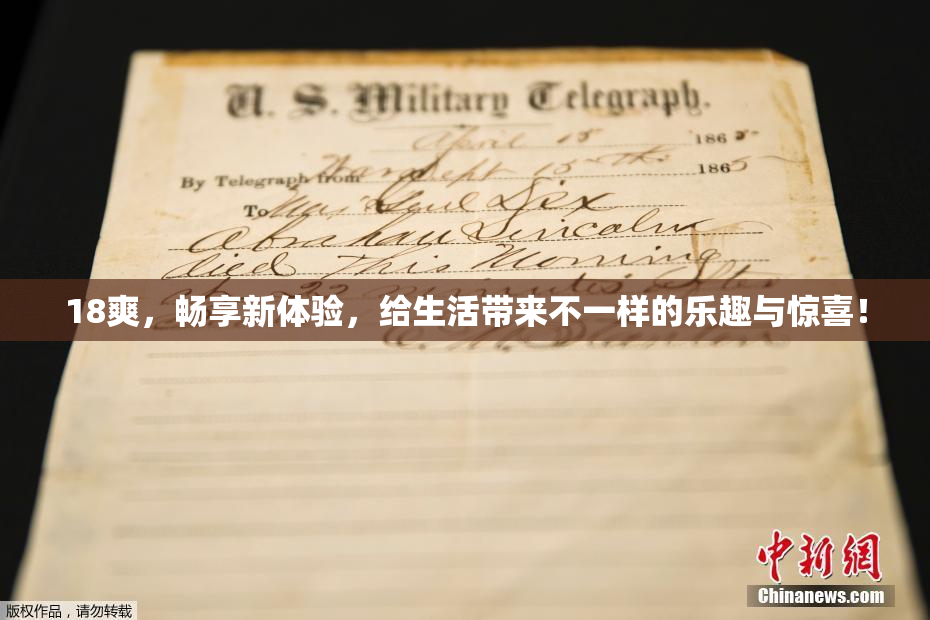 U. S. Military Telegraph.
April 15 1865
By Telegraph from War Dept 15th 1865
To Maj Genl Dix
Abraham Lincoln
died This Morning
at 22 minutes after
18爽，畅享新体验，给生活带来不一样的乐趣与惊喜！
E. M. Stanton
中新网
Chinanews.com
版权作品，请勿转载